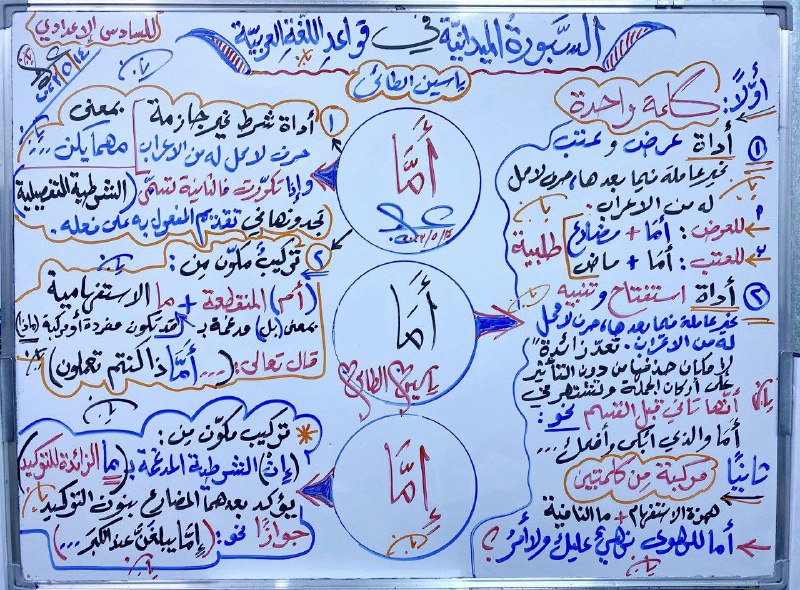 السَّبورةُ الميدانيّة في قواعدِ اللّغةِ العربيّة
للسادس الإعدادي
ياسين الطائي
أوّلاً: كلمة واحدة
① أداة عرض وعتب
غير عاملة فيما بعدها، حرف لا محل
له من الاعراب.
١ للعرض: أمَا + مضارع
٢ للعتب: أمَا + ماضٍ
طلبية
② أداة استفتاح وتنبيه
غير عاملة فيما بعدها، حرف لا محل
له من الاعراب. تعدّ زائدة
لإمكان حذفها من دون التأثير
على أركان الجملة وتشتهر في
أنّها تأتي قبل القسم نحو:
أمَا والذي أبكى وأضحك...
ثانيًا مركبة من كلمتين
همزة الاستفهام + ما النافية
أما للهوى نهيٌ عليك ولا أمرُ؟
أَمَّا
٢٠٢٢/٥/١٥
① أداة شرط غير جازمة بمعنى
حرف لا محل له من الاعراب مهما يكن...
وإذا تكرّرت فالثانية تسمّى (الشرطية التفصيلية)
نجدونها في تقديم المفعول به على فعله.
② تركيبٌ مكوّن من:
(أم) المنقطعة + ما الاستفهامية
بمعنى (بل) مدغمة بـ قد تكون مفردة أو مركبة (ماذا)
قال تعالى: (...أمّاذا كنتم تعملون)
أَمَا
ياسين الطائي
* تركيب مكوّن من:
(إنْ) الشرطية المدغمة بـ (ما الزائدة للتوكيد)
يؤكد بعدها المضارع بنون التوكيد
جوازًا نحو: (إمّا يبلغنَّ عندك الكبرَ...)
إِمَّا